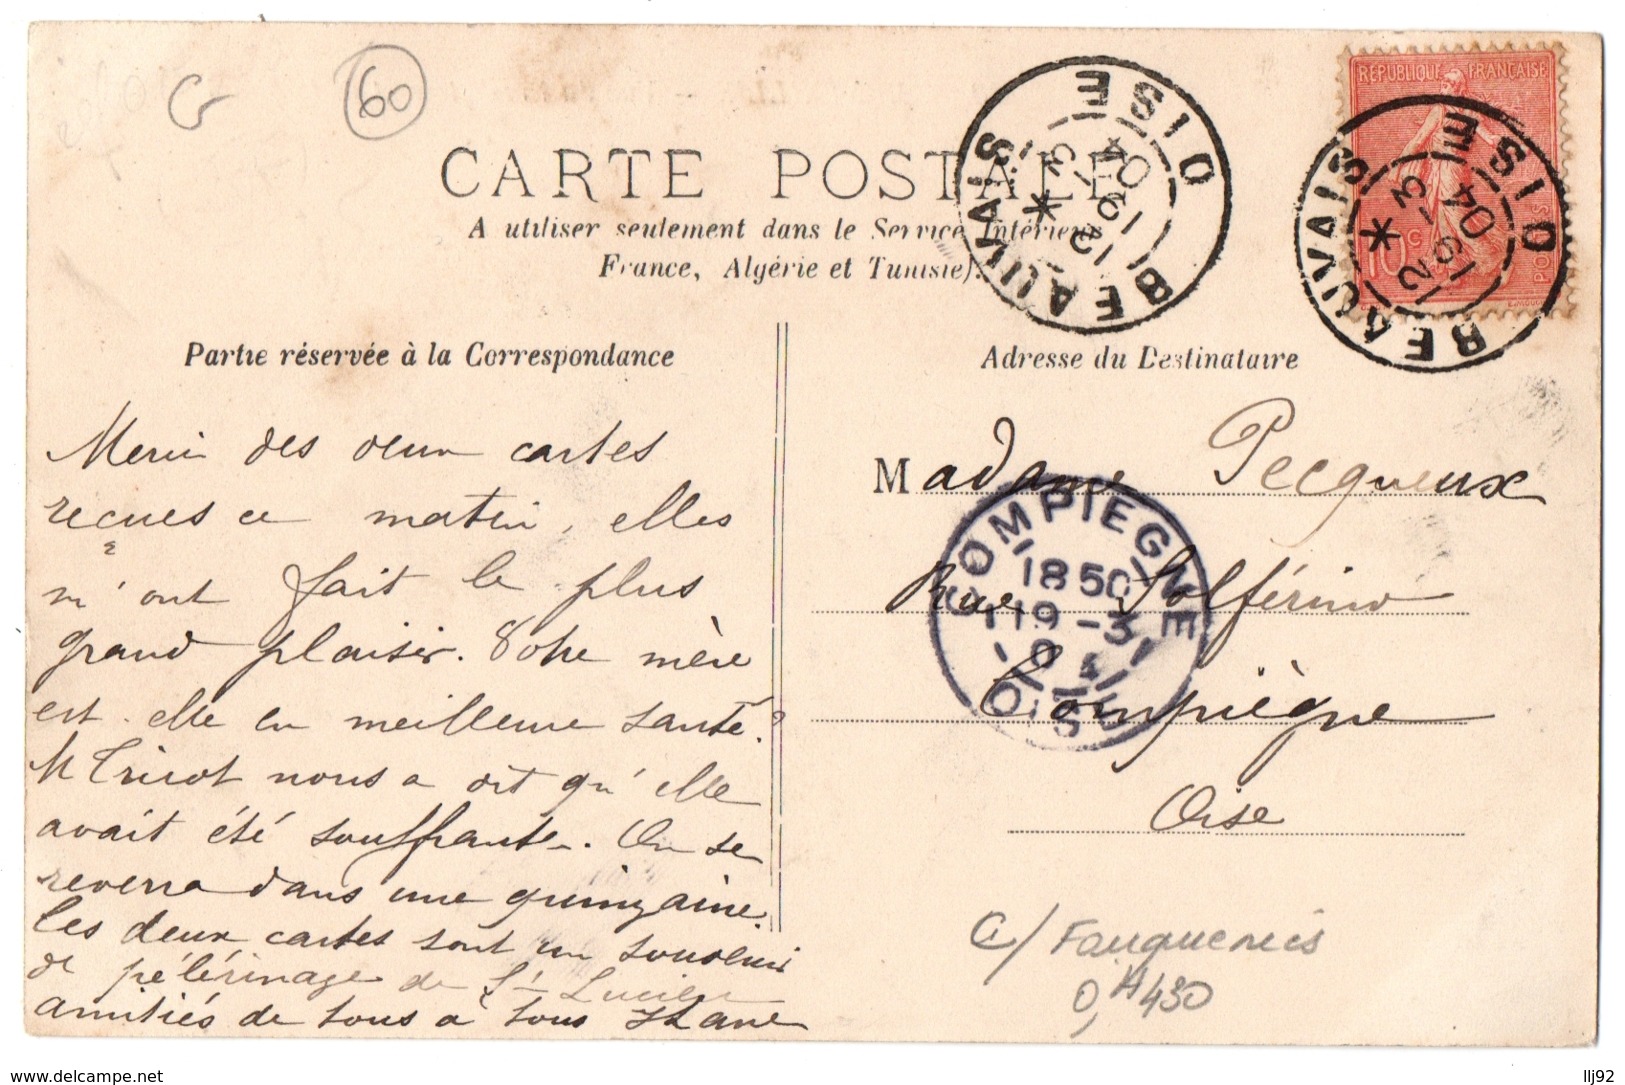 G 60
CARTE POSTALE
A utiliser seulement dans le Service Intérieur
France, Algérie et Tunisie).
REPUBLIQUE FRANÇAISE
10 c
POSTES
BEAUVAIS OISE
12 19/3 04
BEAUVAIS OISE
12 19/3 04
Partie réservée à la Correspondance
Merci des deux cartes
reçues ce matin, elles
m'ont fait le plus
grand plaisir. Votre mère
est-elle en meilleure santé?
M Tricot nous a dit qu'elle
avait été souffrante. On se
reverra dans une quinzaine.
Les deux cartes sont un souvenir
de pélérinage de Ste Lucien
amitiés de tous à tous
Adresse du Destinataire
Madame Pecqueux
Rue Solférino
Compiègne
Oise
COMPIEGNE
1850
19-3
04
OISE
C/ Fouquenies
0,430
www.delcampe.net
llj92